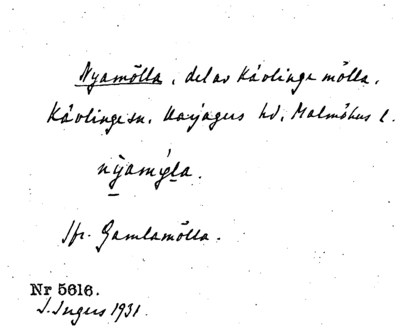 Nyamölla, del av Kävlinge mölla,
Kävlinge sn, Harjagers hd, Malmöhus l.
nỳamýla.
Jfr. Gamlamölla.
Nr 5616.
J. Ingers 1931.